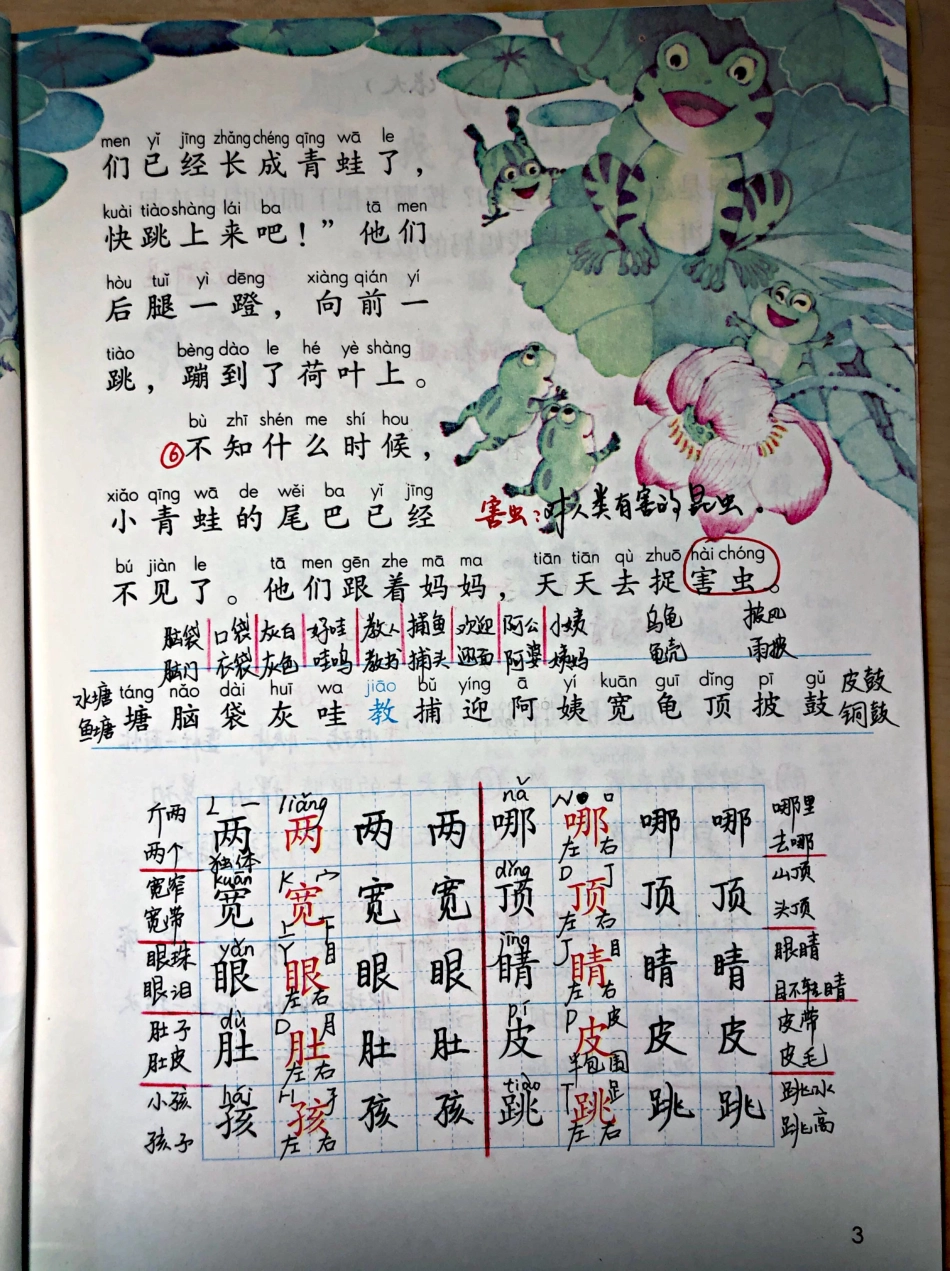 men yǐ jīng zhǎng chéng qīng wā le
们已经长成青蛙了，
kuài tiào shàng lái ba tā men
快跳上来吧！”他们
hòu tuǐ yì dēng xiàng qián yí
后腿一蹬，向前一
tiào bèng dào le hé yè shàng
跳，蹦到了荷叶上。
bù zhī shén me shí hou
⑥不知什么时候，
xiǎo qīng wā de wěi ba yǐ jīng
小青蛙的尾巴已经
害虫：对人类有害的昆虫。
bú jiàn le tā men gēn zhe mā ma tiān tiān qù zhuō hài chóng
不见了。他们跟着妈妈，天天去捉害虫。
脑袋 口袋 灰白 好哇 教人 捕鱼 欢迎 阿公 小姨 乌龟 披风
脑门 衣袋 灰色 哇呜 教书 捕头 迎面 阿婆 姨妈 龟壳 雨披
水塘 táng nǎo dài huī wa jiāo bǔ yíng ā yí kuān guī dǐng pī gǔ 皮鼓
鱼塘 塘脑袋灰哇教捕迎阿姨宽龟顶披鼓 铜鼓
斤两 L 一 liǎng nǎ N 口 哪里
两个 两 两 两 两 哪 哪 哪 哪 去哪
独体 左 右
宽窄 kuān K 宀 dǐng D 丁 山顶
宽带 宽 宽 宽 宽 顶 顶 顶 顶 头顶
上 下 左 右
眼珠 yǎn Y 目 jīng J 目 眼睛
眼泪 眼 眼 眼 眼 睛 睛 睛 睛 目不转睛
左 右 左 右
肚子 dù D 月 pí P 皮 皮带
肚皮 肚 肚 肚 肚 皮 皮 皮 皮 皮毛
左 右 半包围
小孩 hái H 子 tiào T 足 跳水
孩子 孩 孩 孩 孩 跳 跳 跳 跳 跳高
左 右 左 右
3